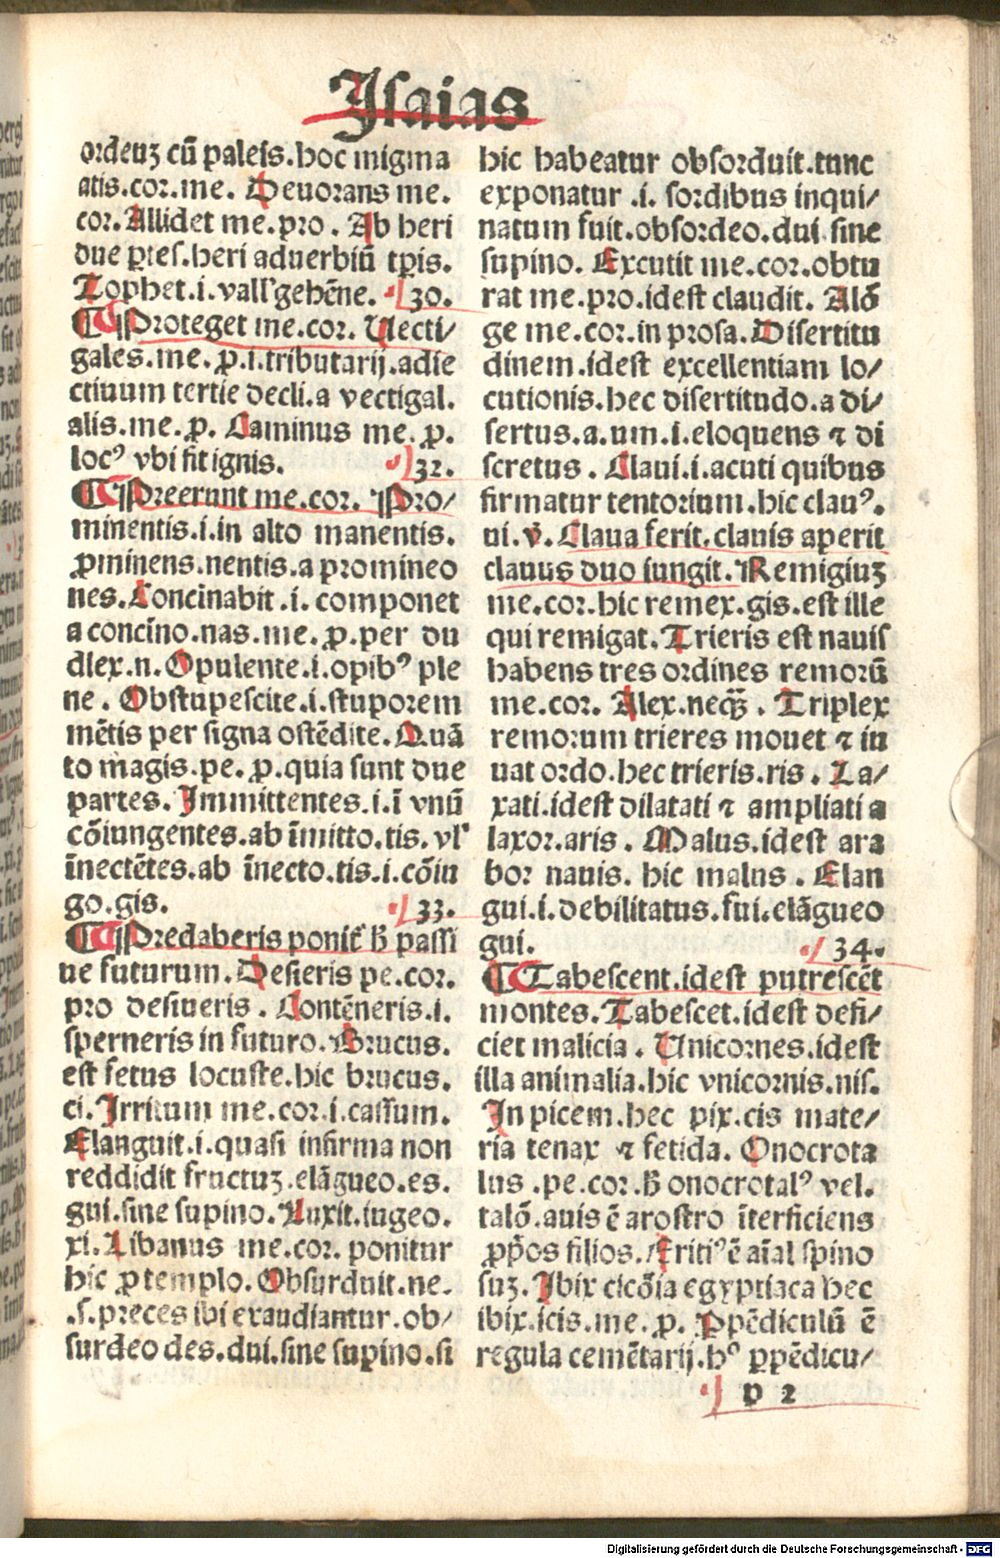 Isaias
ordeuʒ cū paleis.hoc migma
atis.cor.me. Deuorans me.
cor.Allidet me.pro. Ab heri
due ꝑtes.heri aduerbiū tꝑis.
Tophet.i.vall'gehēne. 30.
¶Proteget me.cor. Uecti/
gales.me.ꝓ.i.tributarij.adie
ctiuum tertie decli.a vectigal.
alis.me.ꝓ. Caminus me.ꝓ.
locꝰ vbi fit ignis. 32.
¶Preerunt me.cor. Pro/
minentis.i.in alto manentis.
ꝓminens.nentis.a promineo
nes.Concinabit.i.componet
a concīno.nas.me.ꝓ.per du
dlex.n.Opulente.i.opibꝰ ple
ne. Obstupescite.i.stuporem
mētis per signa ostēdite.Quā
to magis.pe.ꝓ.quia sunt due
partes.Immittentes.i.ī vnū
cōiungentes.ab īmitto.tis.vl'
īnectētes.ab īnecto.tis.i.cōiu
go.gis. 33.
¶Predaberis ponit' ħ passi
ue futurum.Desieris pe.cor.
pro desiueris. Contēneris.i.
sperneris in futuro.Brucus.
est fetus locuste.hic brucus.
ci.Irritum me.cor.i.cassum.
Elanguit.i.quasi infirma non
reddidit fructuʒ.elāgueo.es.
gui.sine supino.Auxit.iugeo.
xi.Libanus me.cor. ponitur
hic ꝓ templo.Obsurduit.ne.
.s.preces ibi exaudiantur.ob/
surdeo des.dui.sine supino.si
hic habeatur obsorduit.tunc
exponatur .i. sordibus inqui/
natum fuit.obsordeo.dui sine
supino. Excutit me.cor.obtu
rat me.pro.idest claudit. Alō
ge me.cor.in prosa.Disertitu
dinem.idest excellentiam lo/
cutionis.hec disertitudo.a di/
sertus.a.um.i.eloquens ⁊ di
scretus. Claui.i.acuti quibus
firmatur tentorium.hic clauꝰ.
ui.v̄. Claua ferit.clauis aperit
clauus duo iungit.Remigiuʒ
me.cor.hic remex.gis.est ille
qui remigat.Trieris est nauis
habens tres ordines remorū
me.cor. Alex.neqʒ. Triplex
remorum trieres mouet ⁊ iu
uat ordo.hec trieris.ris. La/
xati.idest dilatati ⁊ ampliati a
laxor.aris. Malus.idest ara
bor nauis. hic malus. Elan
gui.i.debilitatus.fui.elāgueo
gui. 34.
¶Tabescent.idest putrescēt
montes.Tabescet.idest defi/
ciet malicia. Unicornes.idest
illa animalia.hic vnicornis.nis.
In picem.hec pix.cis mate/
ria tenax ⁊ fetida. Onocrota
lus.pe.cor.ħ onocrotalꝰ vel.
talō.auis ē a rostro īterficiens
ꝓp̄os filios.Eritiꝰ ē aīal spino
suʒ.Ibix cicōia egyptiaca hec
ibix.icis.me.ꝓ. Ꝑpēdiculū ē
regula cemētarij.hꝰ ꝑpēdicu/
p 2
Digitalisierung gefördert durch die Deutsche Forschungsgemeinschaft - DFG